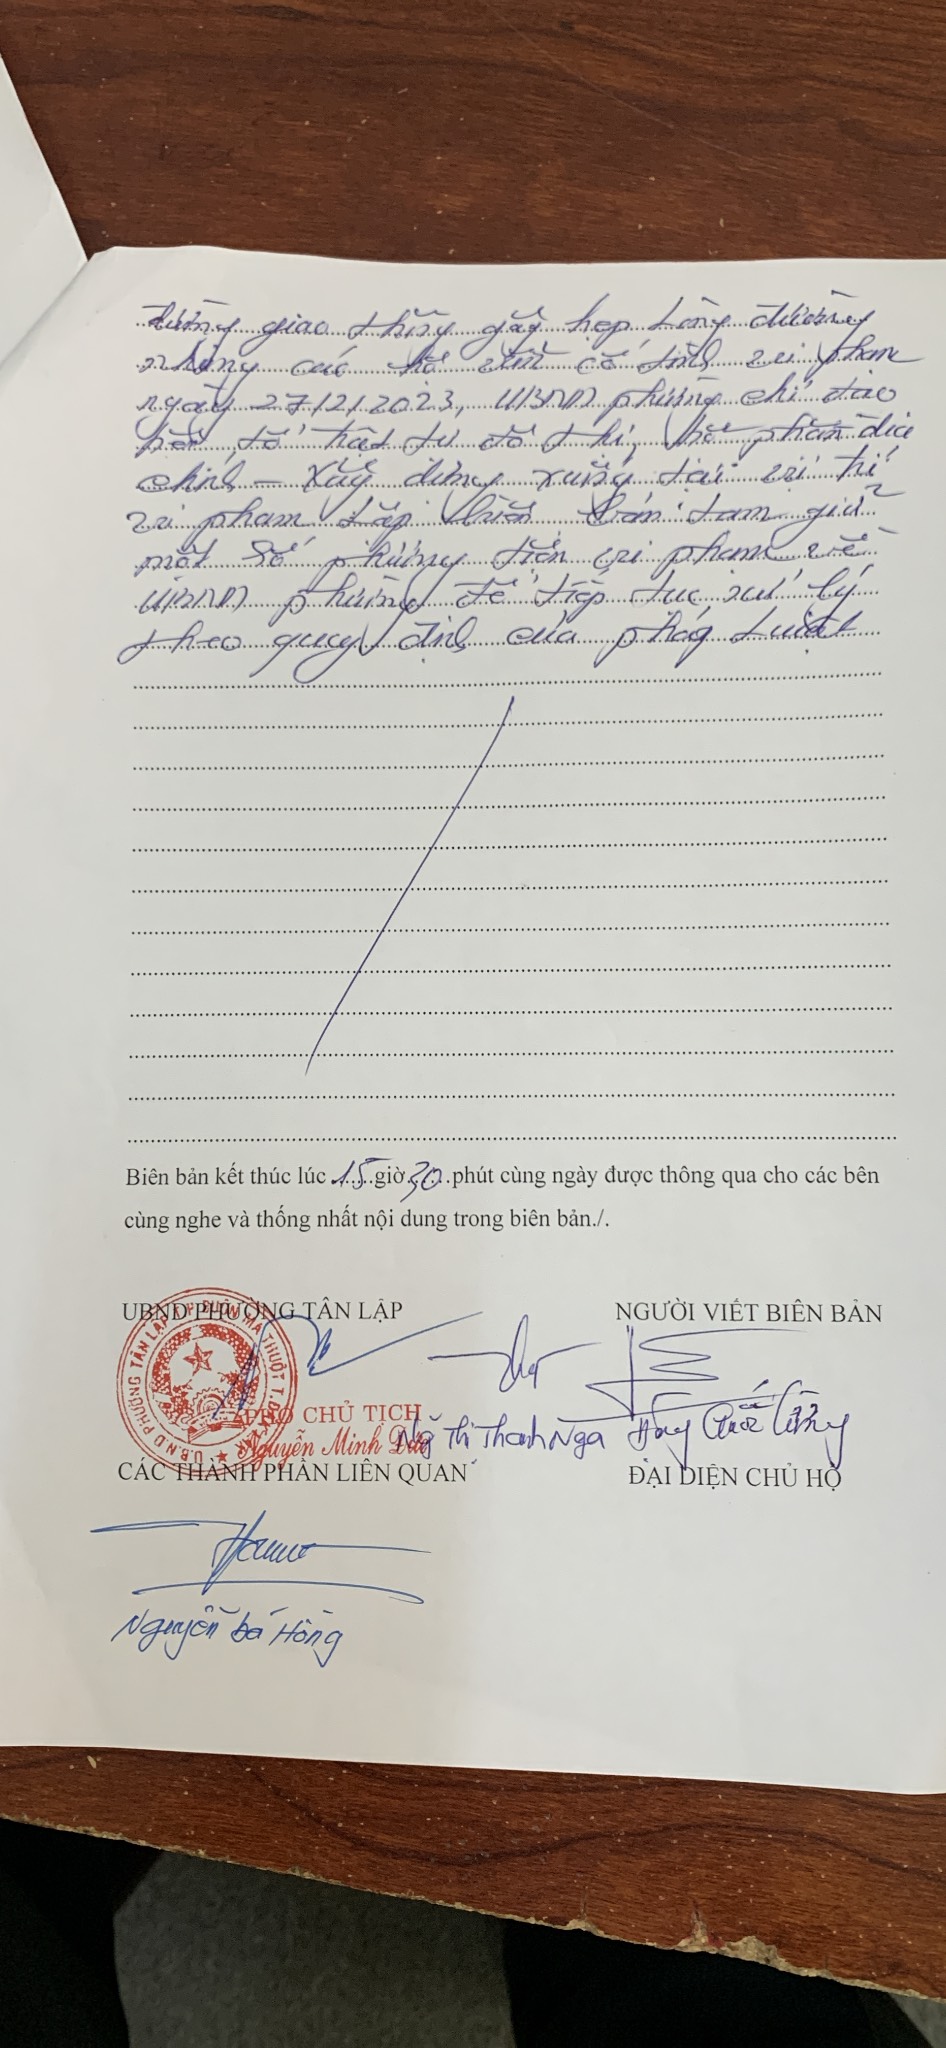 đường giao thông gây hẹp lòng đường
nhưng các hộ vẫn cố tình vi phạm
ngày 27/12/2023, UBND phường chỉ đạo
tổ trật tự đô thị, bộ phận địa
chính - Xây dựng xuống tại vị trí
vi phạm lập biên bản tạm giữ
một số phương tiện vi phạm về
UBND phường để tiếp tục xử lý
theo quy định của pháp luật
Biên bản kết thúc lúc 15 giờ 30 phút cùng ngày được thông qua cho các bên
cùng nghe và thống nhất nội dung trong biên bản./.
UBND PHƯỜNG TÂN LẬP
NGƯỜI VIẾT BIÊN BẢN
U.B.N.D PHƯỜNG TÂN LẬP
PHÓ CHỦ TỊCH
Nguyễn Minh
Thị Thanh Nga
Quốc
CÁC THÀNH PHẦN LIÊN QUAN
ĐẠI DIỆN CHỦ HỘ
Nguyễn bá Hồng